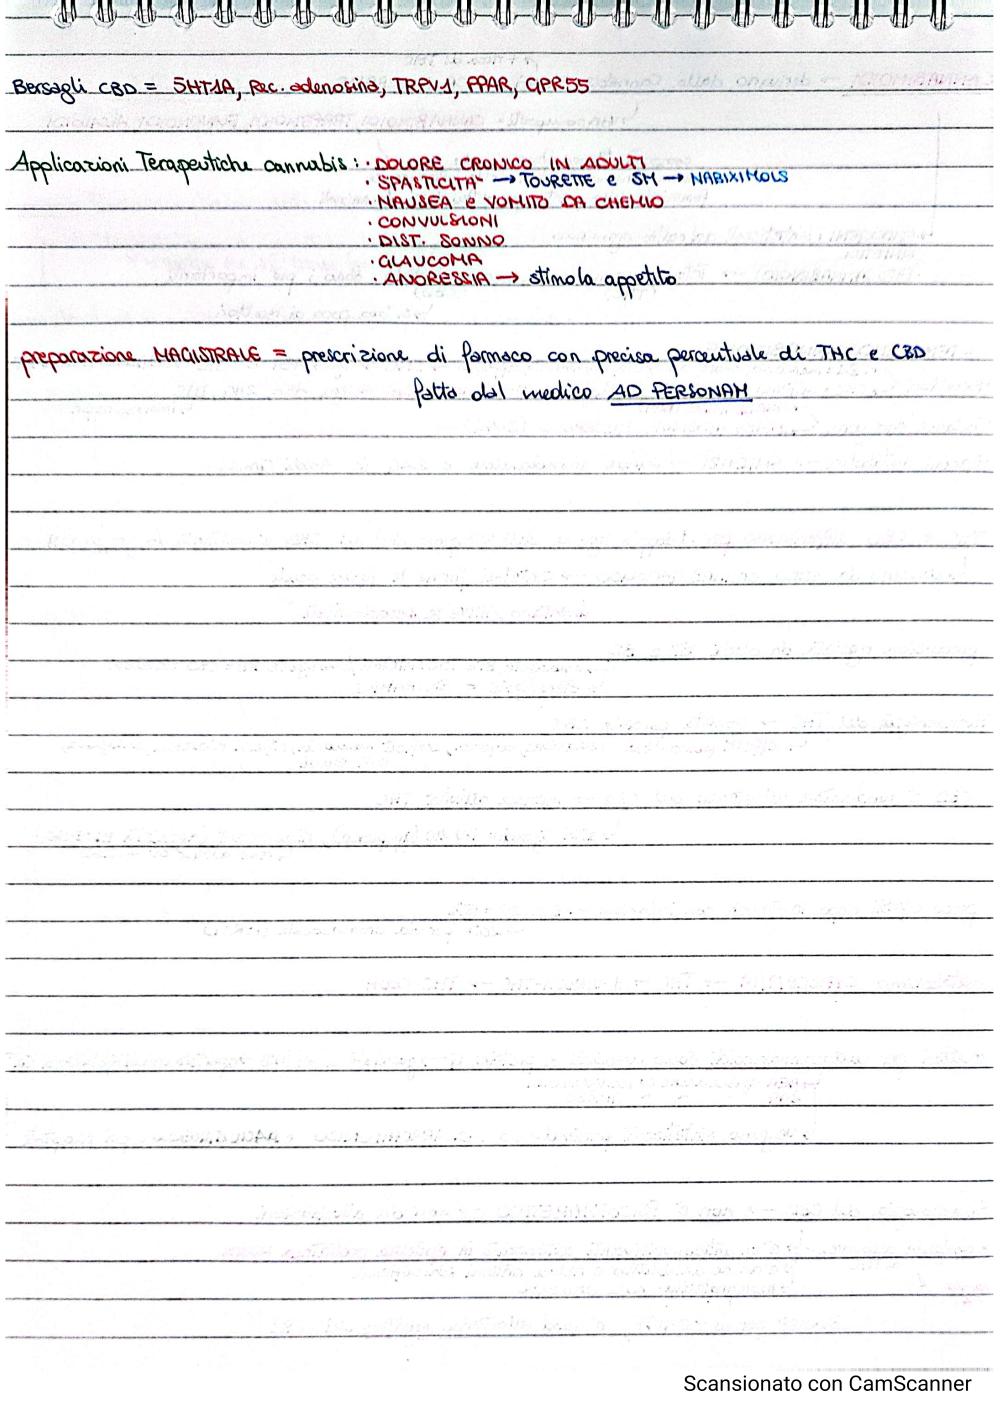 Bersagli CBD = 5HT1A, Rec. adenosina, TRPV1, PPAR, GPR55
Applicazioni Terapeutiche cannabis: · DOLORE CRONICO IN ADULTI
· SPASTICITA' → TOURETTE e SM → NABIXIMOLS
· NAUSEA e VOMITO DA CHEMIO
· CONVULSIONI
· DIST. SONNO
· GLAUCOMA
· ANORESSIA → stimola appetito
preparazione MAGISTRALE = prescrizione di farmaco con precisa percentuale di THC e CBD
fatta dal medico AD PERSONAM
Scansionato con CamScanner